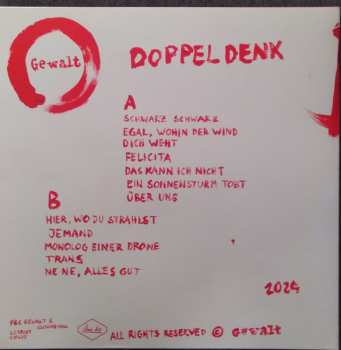 Gewalt
DOPPELDENK
A
SCHWARZ SCHWARZ
EGAL, WOHIN DER WIND
DICH WEHT
FELICITA
DAS KANN ICH NICHT
EIN SONNENSTURM TOBT
ÜBER UNS
B
HIER, WO DU STRAHLST
JEMAND
MONOLOG EINER DRONE
TRANS
NE NE, ALLES GUT
2024
P&C GEWALT &
ALL RIGHTS RESERVED © Gewalt